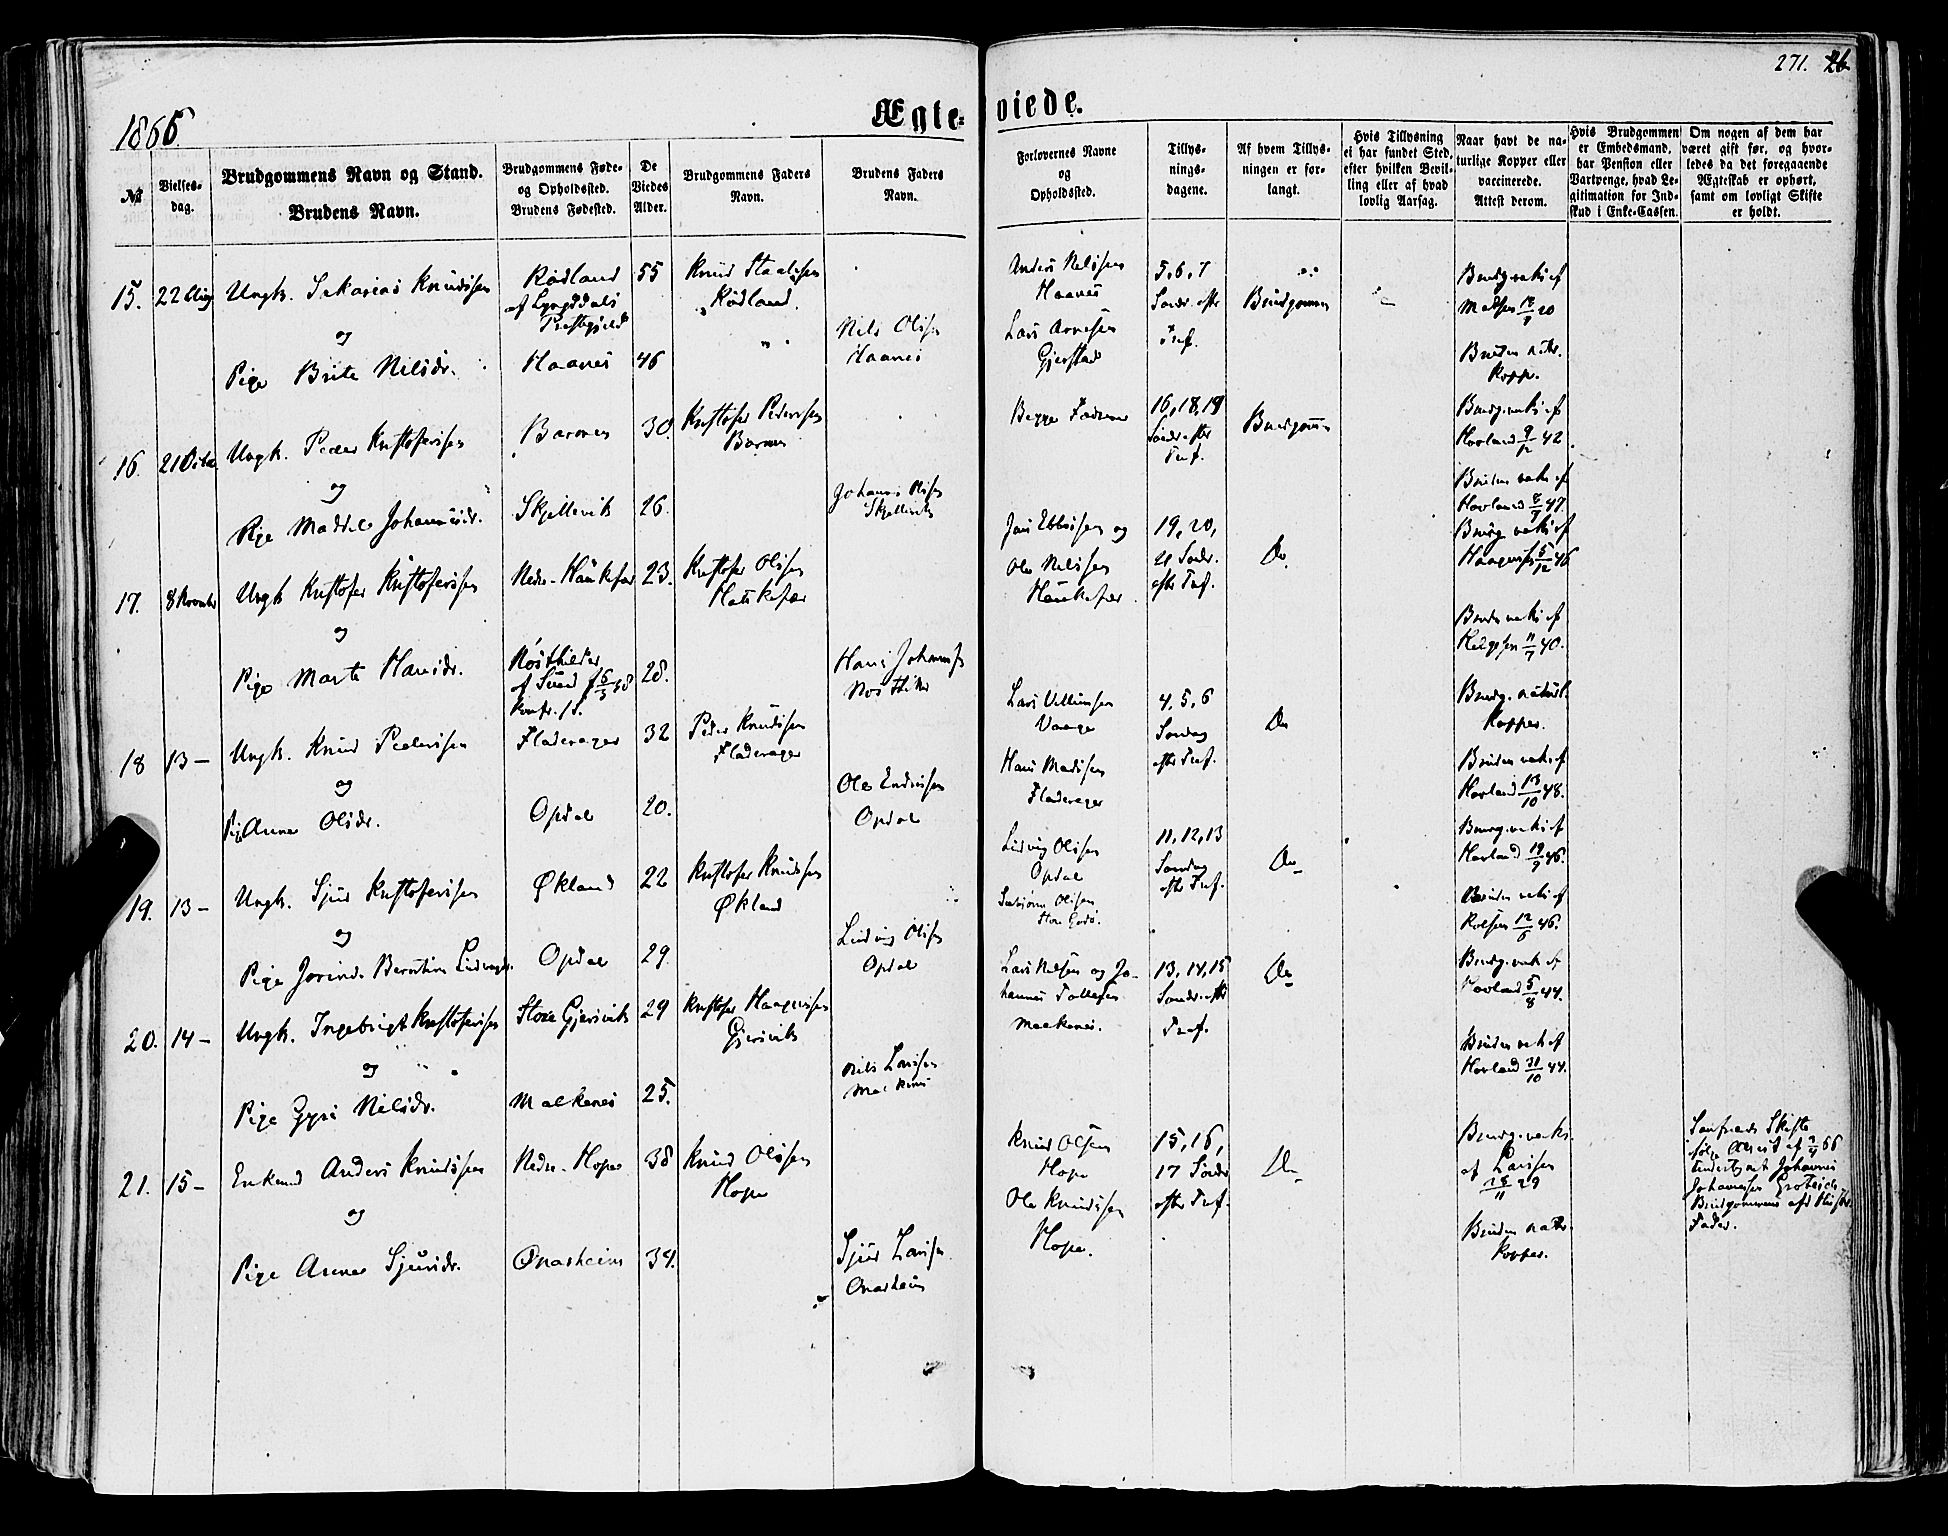 271. 26
1866
Ægte- viede.
№
Vielses-
dag.
Brudgommens Navn og Stand.
Brudens Navn.
Brudgommens Føde-
og Opholdssted.
Brudens Fødested.
De
Viedes
Alder.
Brudgommens Faders
Navn.
Brudens Faders
Navn.
Forlovernes Navne
og
Opholdssted.
Tillys-
nings-
dagene.
Af hvem Tillys-
ningen er for-
langt.
Hvis Tillysning
ei har fundet Sted,
efter hvilken Bevil-
ling eller af hvad
lovlig Aarsag.
Naar havt de na-
turlige Kopper eller
vaccinerede.
Attest derom.
Hvis Brudgommen
er Embedsmand,
har Pension eller
Vartpenge, hvad Le-
gitimation for Ind-
skud i Enke-Cassen.
Om nogen af dem har
været gift før, og hvor-
ledes da det foregaaende
Ægteskab er ophørt,
samt om lovligt Skifte
er holdt.
15. 22 Aug Ungk. Sakarias Knudsen
og
Pige Brite Nilsdr.
Rødland
af Lyngdals
Præstegjeld
Haanes
55
46
Knud
Rødland
Nils Olsen
Haanes
Anders Nilsen
Haanes
Lars Arnesen
Gjerstad
5, 6, 7
Sondr. efter
Tref.
Brudgommen
Brudg. vaks af
Madsen 20
Bruden natr.
Kopper.
16. 21 Octbr Ungk. Peder Kristofersen
og
Pige Johannesdr.
Baronen
Skjellevik
30
26.
Kristofer Pedersen
Johannes Olsen
Skjellevik
Begge Fædrene
16, 18, 19
Søndr. efter
Tref.
Brudgommen
Brudg. vaks af
Hovland 9/12 42
Bruden vaks af
Hovland 47.
17. 8 Novmbr Ungk Kristofer Kristofersen
og
Pige Marte Hansdr.
Nedre-Haukefær
af Sund
28.
23.
Kristofer Olsen
Haukefær
Hans Johannesen
Jens Ebbesen og
Ole Nilsen
Haukefær
19, 20,
21 Søndr.
efter Tref.
Do
Brudg vaks af
5/12 46
Bruden vaks af
Helgesen 11/7 40.
18 13 – Ungk. Knud Pedersen
og
Pige Anna Olsdr.
Fladerager
Opdal
32
20.
Peder Knudsen
Fladerager
Ole Endresen
Opdal
Lars Villumsen
Vaage
Hans Madsen
Fladerager
4, 5, 6
Søndag
efter Tref.
Do
Brudg. naturl.
Kopper.
Bruden vaks af
Hovland 13/10 48.
19. 13 – Ungk. Sjur Kristofersen
og
Pige Jorine Berntine Ludvigsdr.
Økland
Opdal
22
29.
Kristofer Knudsen
Økland
Ludvig Olsen
Opdal
Ludvig Olsen
Opdal
Olsen
Store Godø.
11, 12, 13
Søndag
efter Tref.
Do
Brudg. vaks af
Hovland 19/9 46.
Bruden vaks af
Rolfsen 12/6 46.
20. 14 – Ungk. Ingebrigt Kristofersen
og
Pige Gyri Nilsdr.
Store Gjersvik
Malkenes
29
25.
Kristofer Haagensen
Gjersvik
Nils Larsen
Malkenes
Lars Nilsen og Jo-
hannes Tollefsen
Malkenes.
13, 14, 15
Søndr. efter
Tref.
Do
Brudg. vak af
Hovland 5/8 44.
Bruden vak af
Hovland 31/10 44.
21. 15 – Enkemd Anders Knudsen
og
Pige Anna Sjursdr.
Nedre-Hope
Onarheim
38
34.
Knud Olsen
Hope
Sjur Larsen
Onarheim
Knud Olsen
Hope
Ole Knudsen
Hope.
15, 16,
17 Søndr
efter Tref.
Do
Brudg. vaks.
af Larsen
29
Bruden natr.
Kopper.
Samfrænde Skifte
ifølge Attest af 66
undertegnet Johannes
Johannesen
Brudgommens afd Hustrus
Fader.